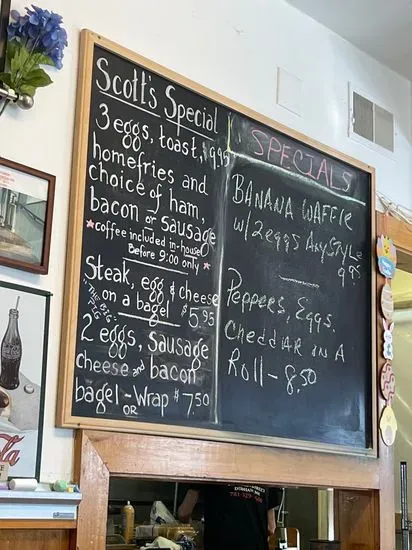 Scott's Special
3 eggs, toast, $9.95
homefries and
choice of ham,
bacon or sausage
*coffee included in-house
Before 9:00 only*
Steak, egg & cheese
on a bagel $5.95
"THE BIG PIG"
2 eggs, sausage
cheese and bacon
bagel or wrap $7.50
SPECIALS
BANANA WAFFLE
w/ 2 eggs Any STYLE
9.95
Peppers, Eggs,
CheddAR on A
Roll - 8.50